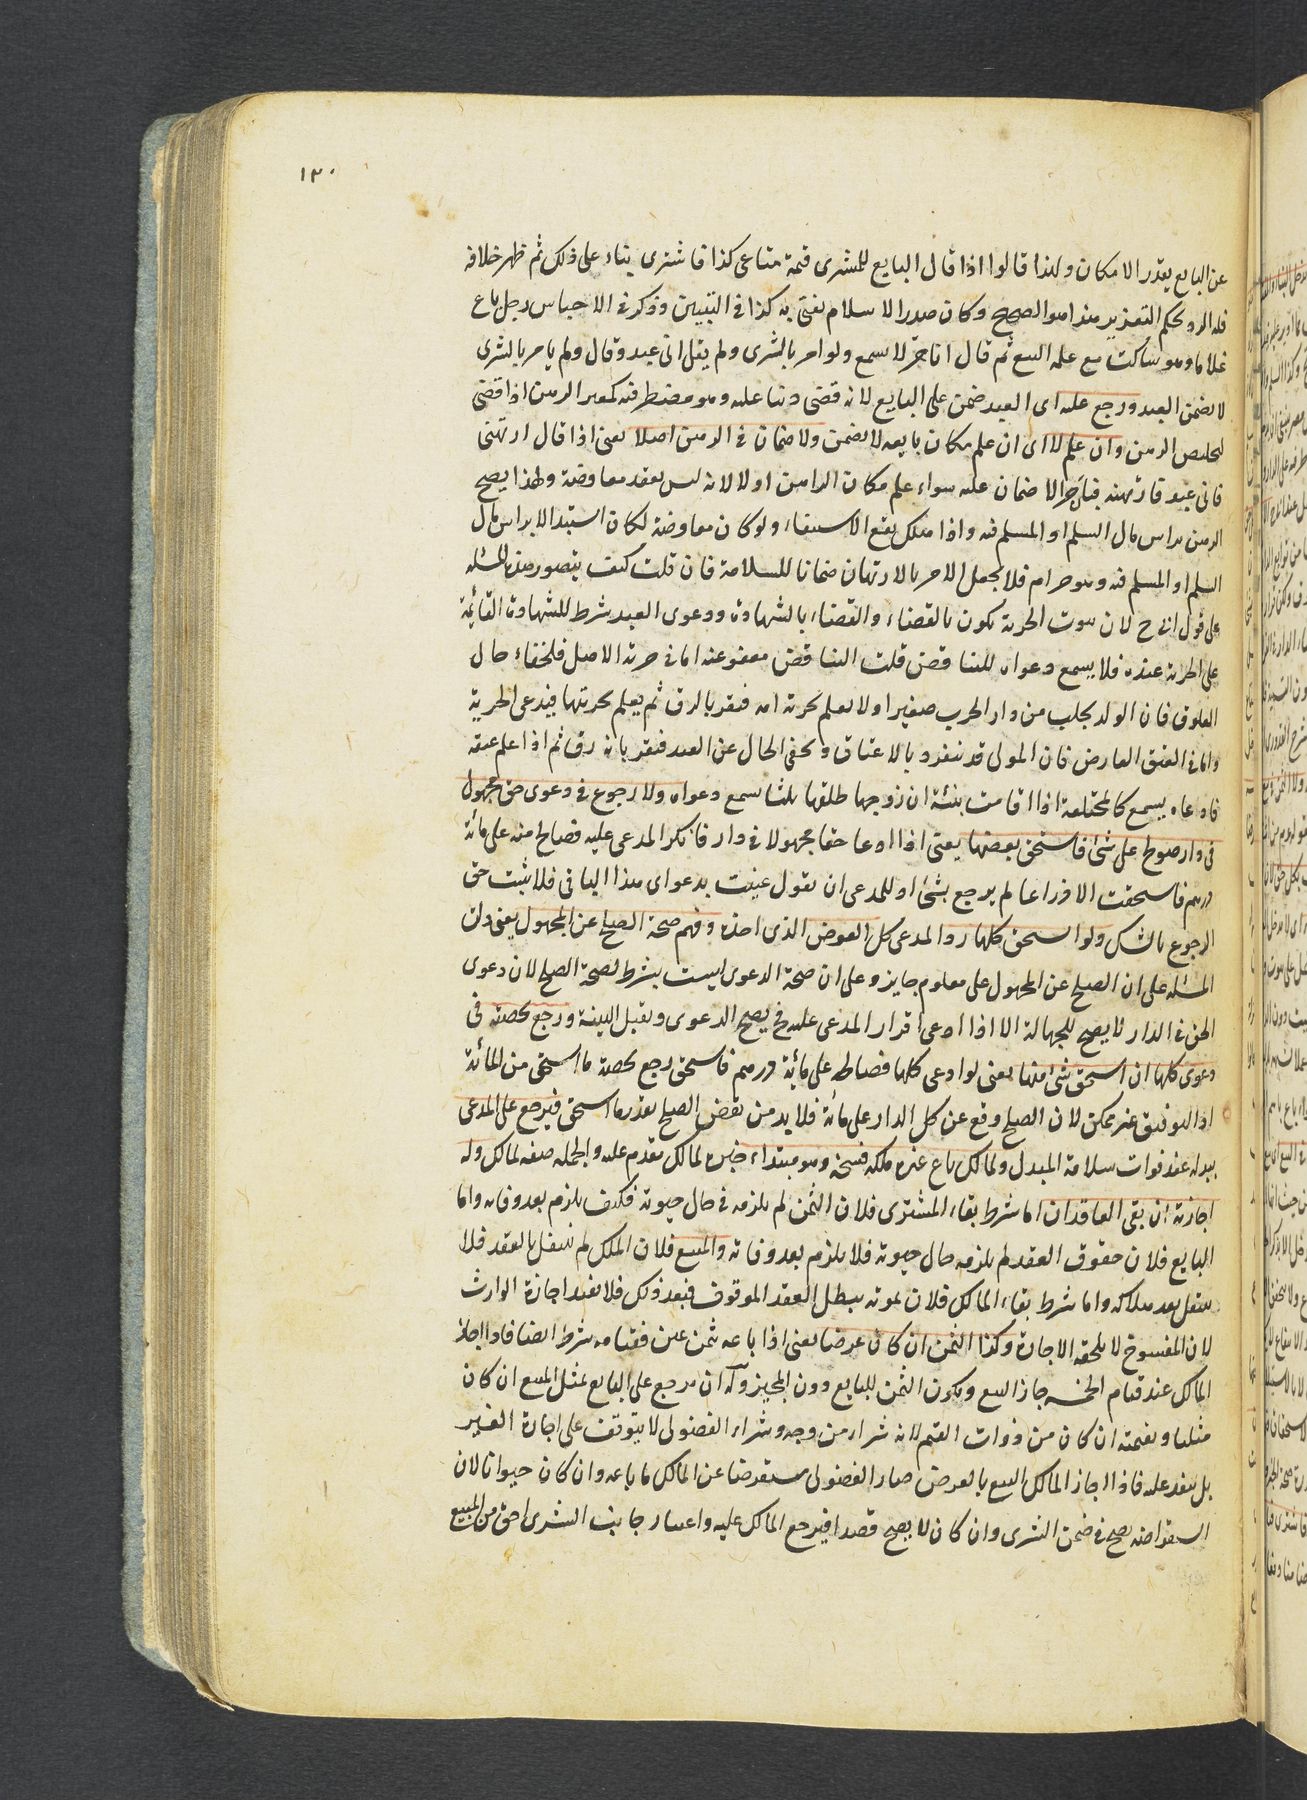 ١٣٠
عن البايع بقدر الامكان ولهذا قالوا اذا قال البايع للمشرى قيمة متاعى كذا فاشترى بناء على ذلك ثم ظهر خلافه
فله الرد بحكم التغرير هذا هو الصحيح وكان صدر الاسلام يفتى به كذا فى التبيين وذكر فى الاجناس رجل باع
غلاما وهو ساكت مع علمه البيع ثم قال انا حر لا يسمع ولو امر بالشرى ولم يقل انى عبد وقال ولم يامر بالشرى
لا يضمن العبد ورجع عليه اى العبد ضمن على البايع لانه قضى دينا عليه وهو مضطر فيه كمعير الرهن اذا قضى
لتخليص الرهن وان علم لا اى ان علم مكان بايعه لا يضمن ولا ضمان فى الرهن اصلا يعنى اذا قال ارتهنى
فانى عبد فارتهنه فبان حرا لا ضمان عليه سواء علم مكان الراهن اولا لانه ليس بعقد معاوضة ولهذا يصح
الرهن براس مال السلم او المسلم فيه واذا هلك يقع الاستيفاء ولو كان معاوضة لكان استبدالا براس مال
السلم او المسلم فيه وهو حرام فلا يجعل الامر بالارتهان ضمانا للسلامة فان قلت كيف يتصور هذه المسئله
على قول ابى ح لان ثبوت الحرية يكون بالقضاء والقضاء بالشهادة ودعوى العبد شرط للشهادة القائمة
على الحرية عنده فلا يسمع دعواه للتناقض قلت التناقض معفو عنه اما فى حرية الاصل فلخفاء حال
العلوق فان الولد يجلب من دار الحرب صغيرا ولا يعلم بحرية امه فيقر بالرق ثم يعلم بحريتها فيدعى الحرية
واما فى العتق العارض فان المولى قد ينفرد بالاعتاق ويخفى الحال عن العبد فيقر بانه رق ثم اذا علم عتقه
فادعاه يسمع كالمختلعة اذا اقامت بينة ان زوجها طلقها ثلثا يسمع دعواه ولا رجوع فى دعوى حق مجهول
فى دار صولح على شئ فاستحق بعضها يعنى اذا ادعا حقا مجهولا فى دار فانكر المدعى عليه فصالح منه على مائة
درهم فاستحقت الا ذراعا لم يرجع بشئ اذ للمدعى ان يقول عنيت بدعواى هذا الباقى فلا يثبت حق
الرجوع بالشك ولو استحق كلها رد المدعى كل العوض الذى اخذه وفهم صحة الصلح عن المجهول يعنى دلت
المسئله على ان الصلح عن المجهول على معلوم جايز وعلى ان صحة الدعوى ليست بشرط لصحة الصلح لان دعوى
الحق فى الدار لا يصح للجهالة الا اذا ادعى اقرار المدعى عليه فح يصح الدعوى ويقبل البينة ورجع بحصته فى
دعوى كلها ان استحق شئ منها يعنى لو ادعى كلها فصالحه على مائة درهم فاستحق رجع بحصة ما استحق من المائة
اذ التوفيق غير ممكن لان الصلح وقع عن كل الدار على مائة فلا بد من نقض الصلح بقدر ما استحق فيرجع على المدعى
ببدله عند فوات سلامة المبدل ولمالك باع غيره ملكه فسخه وهو مبتداء خبره لمالك مقدم عليه والجملة صفه لمالك وله
اجازته ان بقى العاقدان اما شرط بقاء المشترى فلان الثمن لم يلزمه فى حال حيوته فكيف يلزم بعد وفاته واما
البايع فلان حقوق العقد لم يلزمه حال حيوته فلا يلزم بعد وفاته والمبيع فلان الملك لم ينتقل بالعقد فلا
ينتقل بعد هلاكه واما شرط بقاء المالك فلان بموته يبطل العقد الموقوف فبعد ذلك فلا يفيد اجازة الوارث
لان المفسوخ لا يلحقه الاجازة وكذا الثمن ان كان عرضا يعنى اذا باعه بثمن عين فقيامه شرط ايضا فاذا اجاز
المالك عند قيام الخمسه جاز البيع ويكون الثمن للبايع دون المجيز وله ان يرجع على البايع بمثل المبيع ان كان
مثليا وبقيمته ان كان من ذوات القيم لانه شراء من وجه وشراء الفضولى لا يتوقف على اجازة الغير
بل ينفذ عليه فاذا اجاز المالك البيع بالعرض صار الفضولى مستقرضا عن المالك ما باعه وان كان حيوانا لان
استقراضه يصح فى ضمن الشرى وان كان لا يصح قصدا فيرجع المالك عليه واعتبار جانب الشرى احق من المبيع